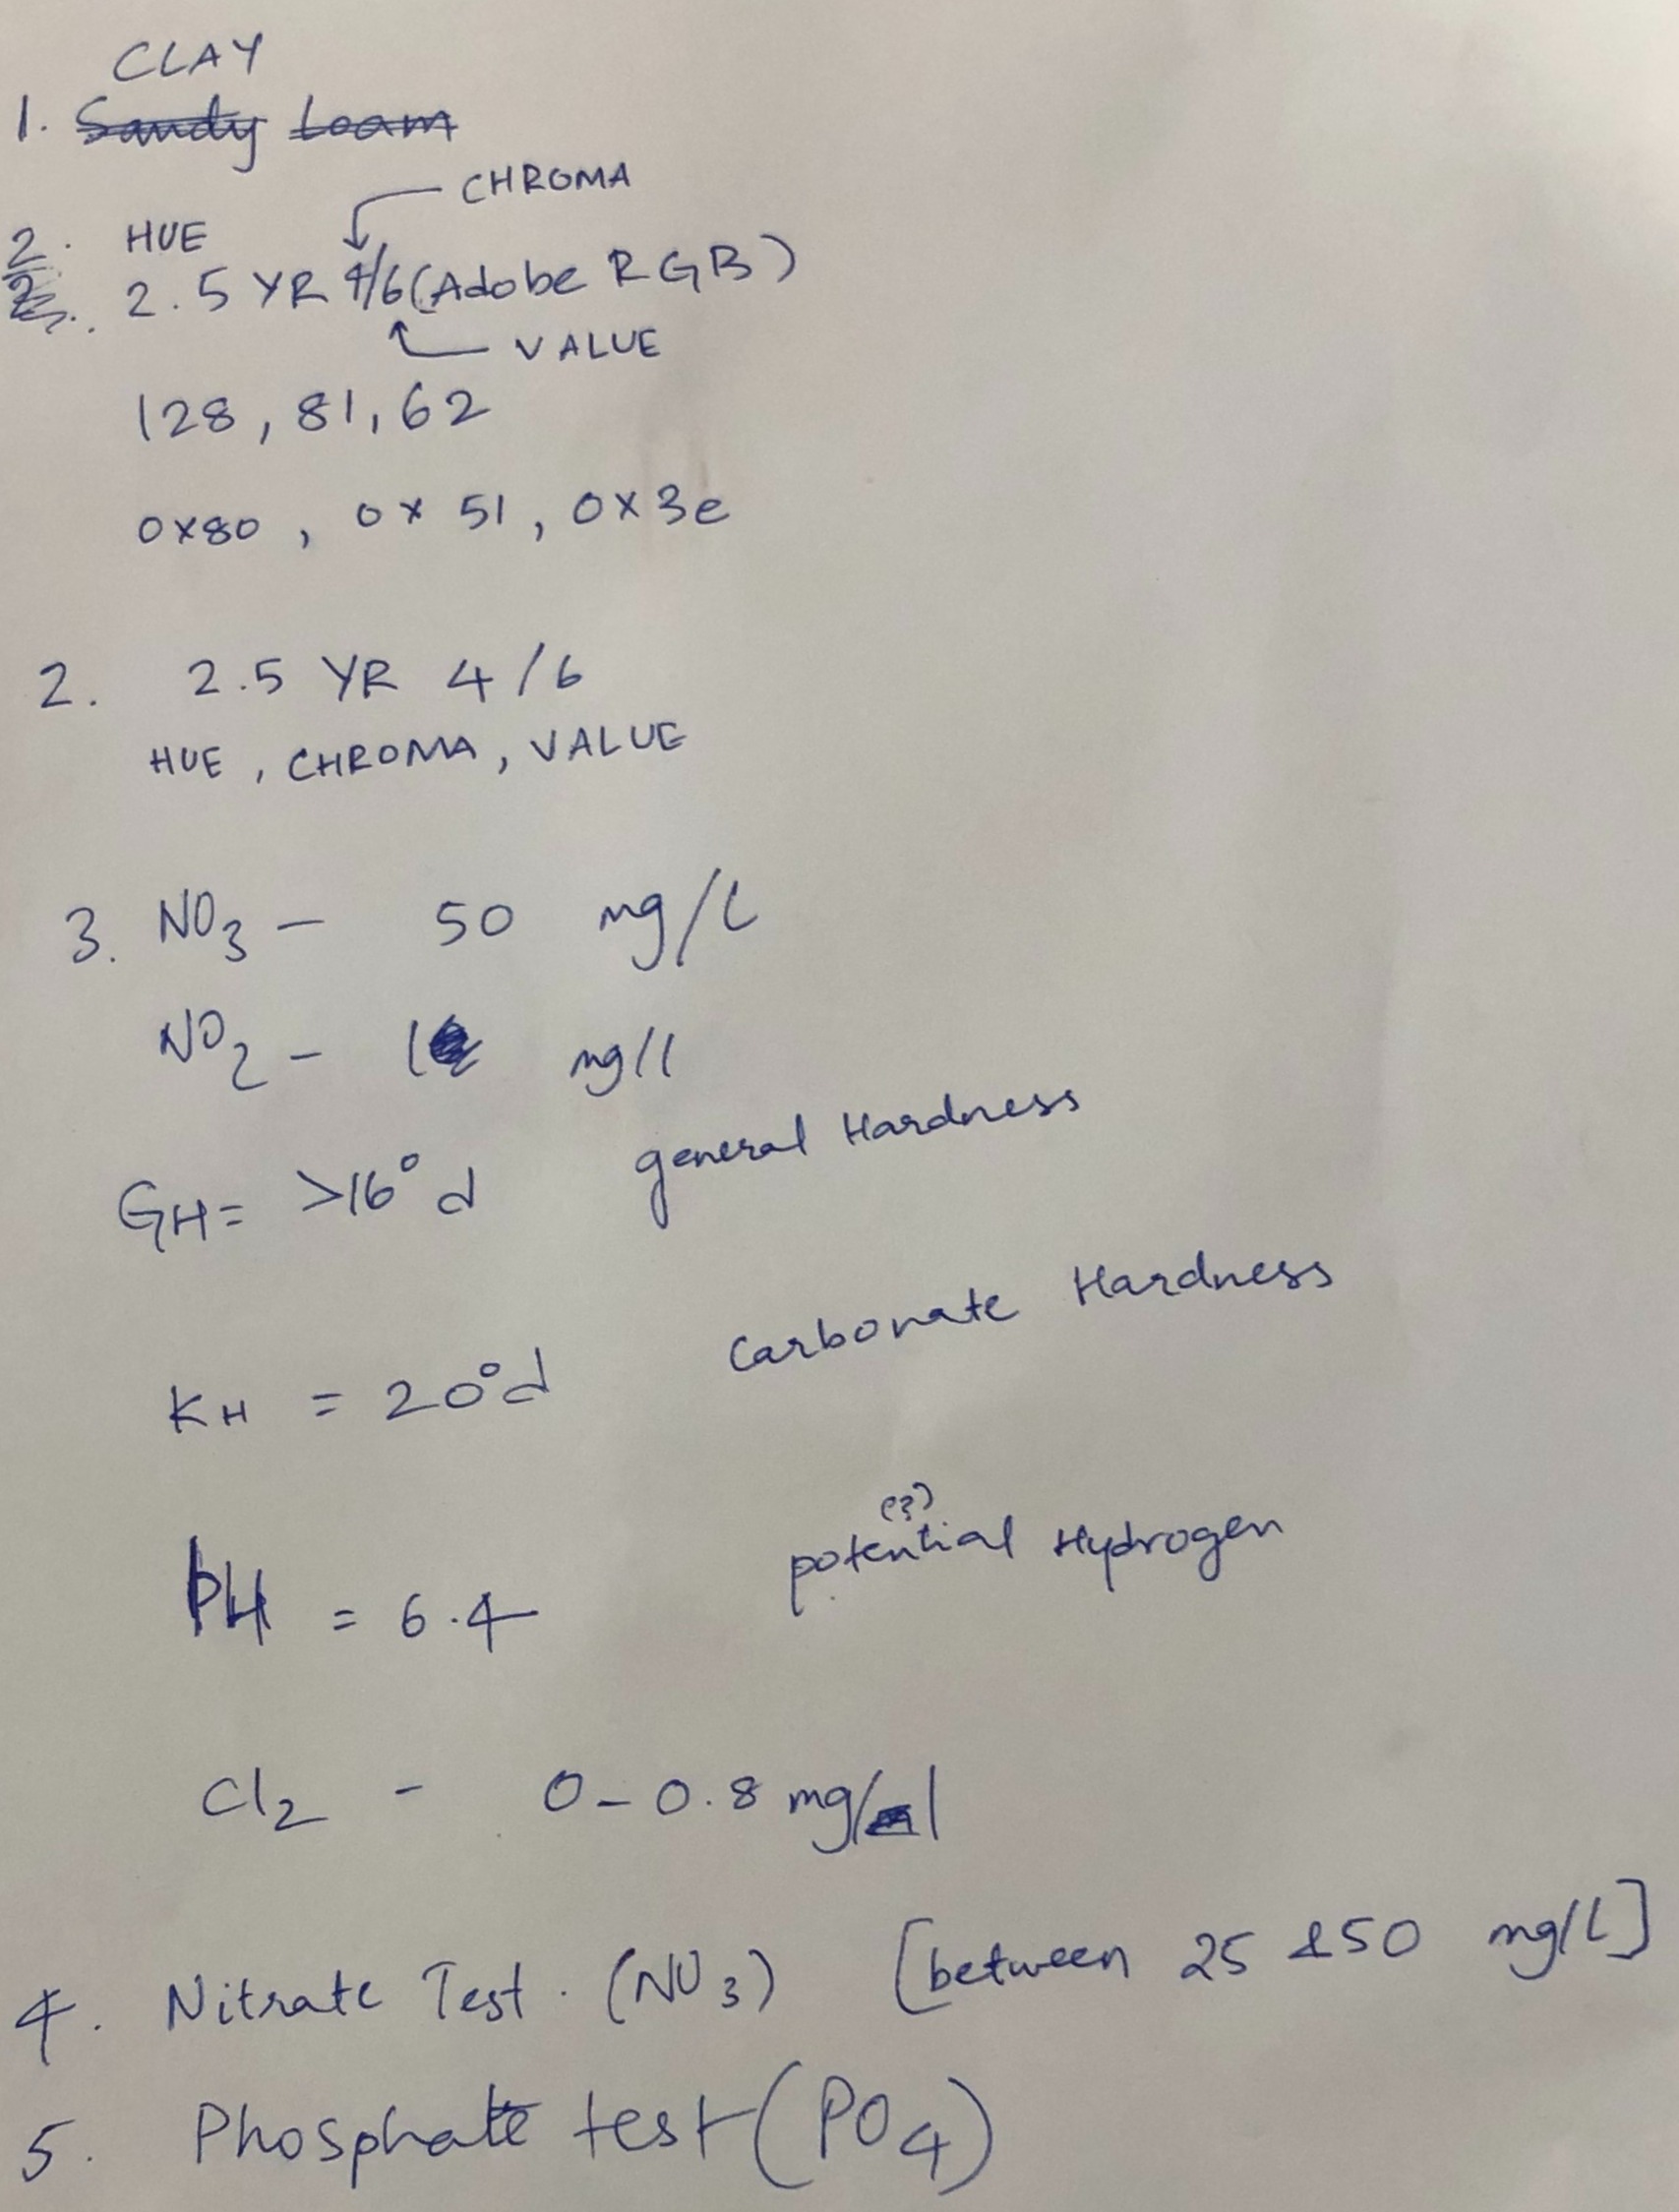 CLAY
1. Sandy Loam
CHROMA
2. HUE
2.5 YR 4/6 (Adobe RGB)
VALUE
128, 81, 62
0x80, 0x51, 0x3e
2. 2.5 YR 4/6
HUE, CHROMA, VALUE
3. NO3 - 50 mg/L
NO2 - 1 mg/l
GH = >16°d general Hardness
KH = 20°d Carbonate Hardness
(?)
PH = 6.4 potential Hydrogen
Cl2 - 0-0.8 mg/l
4. Nitrate Test. (NO3) [between 25 & 50 mg/L]
5. Phosphate test (PO4)